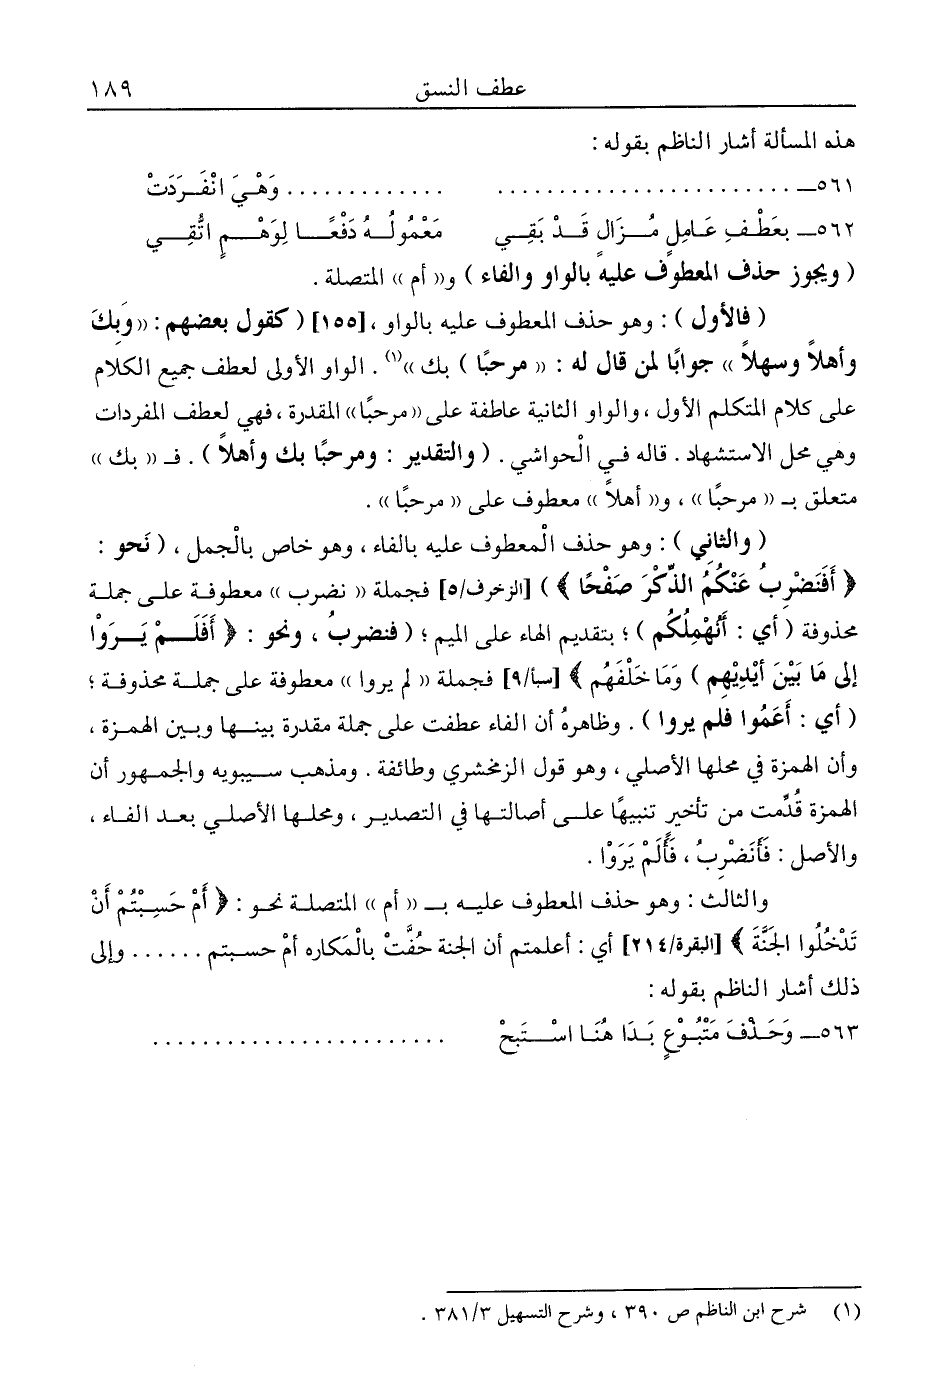 عطف النسق ١٨٩
هذه المسألة أشار الناظم بقوله :
٥٦١ـ ....................... ............. وَهْيَ انْفَرَدَتْ
٥٦٢ـ بِعَطْفِ عَامِلٍ مُزَالٍ قَدْ بَقِي مَعْمُولُهُ دَفْعًا لِوَهْمٍ اتُّقِي
( ويجوز حذف المعطوف عليه بالواو والفاء ) و« أم » المتصلة .
( فالأول ) : وهو حذف المعطوف عليه بالواو ، [١٥٥] ( كقول بعضهم : « وَبِكَ
وأهلاً وسهلاً » جوابًا لمن قال له : « مرحبًا ) بك »(١) . الواو الأولى لعطف جميع الكلام
على كلام المتكلم الأول ، والواو الثانية عاطفة على « مرحبًا» المقدرة ، فهي لعطف المفردات
وهي محل الاستشهاد . قاله في الْحواشي . ( والتقدير : ومرحبًا بك وأهلاً ) . فـ « بك »
متعلق بـ « مرحبًا » ، و« أهلاً » معطوف على « مرحبًا » .
( والثانِي ) : وهو حذف الْمعطوف عليه بالفاء ، وهو خاص بالْجمل ، ( نَحو :
﴿ أَفَنَضْرِبُ عَنْكُمُ الذِّكْرَ صَفْحًا ﴾ ) [الزخرف/٥] فجملة « نضرب » معطوفة على جملة
محذوفة ( أي : أَنُهْمِلُكُم ) ؛ بتقديم الهاء على الميم ؛ ( فنضربُ ، ونحو : ﴿ أَفَلَمْ يَرَوْا
إلى مَا بَيْنَ أَيْدِيْهِم ) وَمَا خَلْفَهُم ﴾ [سبأ/٩] فجملة « لم يروا » معطوفة على جملة محذوفة ؛
( أي : أَعَمُوا فلم يروا ) . وظاهرهُ أن الفاء عطفت على جملة مقدرة بينها وبين الهمزة ،
وأن الهمزة في محلها الأصلي ، وهو قول الزمخشري وطائفة . ومذهب سيبويه والجمهور أن
الهمزة قُدِّمت من تأخيرٍ تنبيهًا على أصالتها في التصدير ، ومحلها الأصلي بعد الفاء ،
والأصل : فَأَنَضْرِبُ ، فَأَلَمْ يَرَوْا .
والثالث : وهو حذف المعطوف عليه بـ « أم » المتصلة نحو : ﴿ أَمْ حَسِبْتُمْ أَنْ
تَدْخُلُوا الجَنَّةَ ﴾ [البقرة/٢١٤] أي : أعلمتم أن الجنة حُفَّتْ بالْمَكاره أمْ حسبتم ...... وإلى
ذلك أشار الناظم بقوله :
٥٦٣ـ وَحَذْفَ مَتْبُوْعٍ بَدَا هُنَا اسْتَبِحْ ........................
(١) شرح ابن الناظم ص ٣٩٠ ، وشرح التسهيل ٣٨١/٣ .